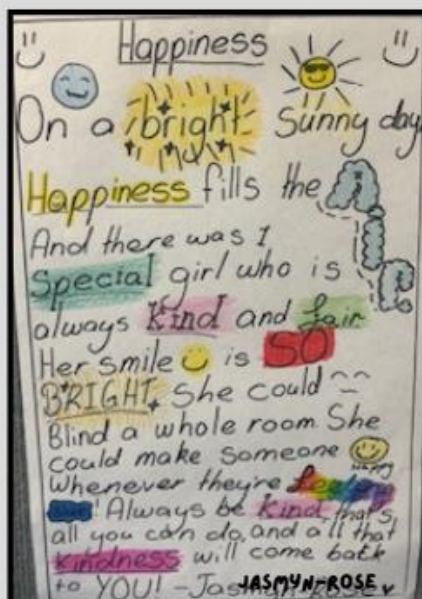 Happiness
On a bright Sunny day
Happiness fills the Air
And there was 1
Special girl who is
always Kind and fair
Her smile is SO
BRIGHT, She could
Blind a whole room She
could make someone
Happy
Whenever they're feeling
Blue! Always be Kind that's
all you can do, and all that
Kindness will come back
to YOU! - Jasmyn-Rose
JASMYN-ROSE